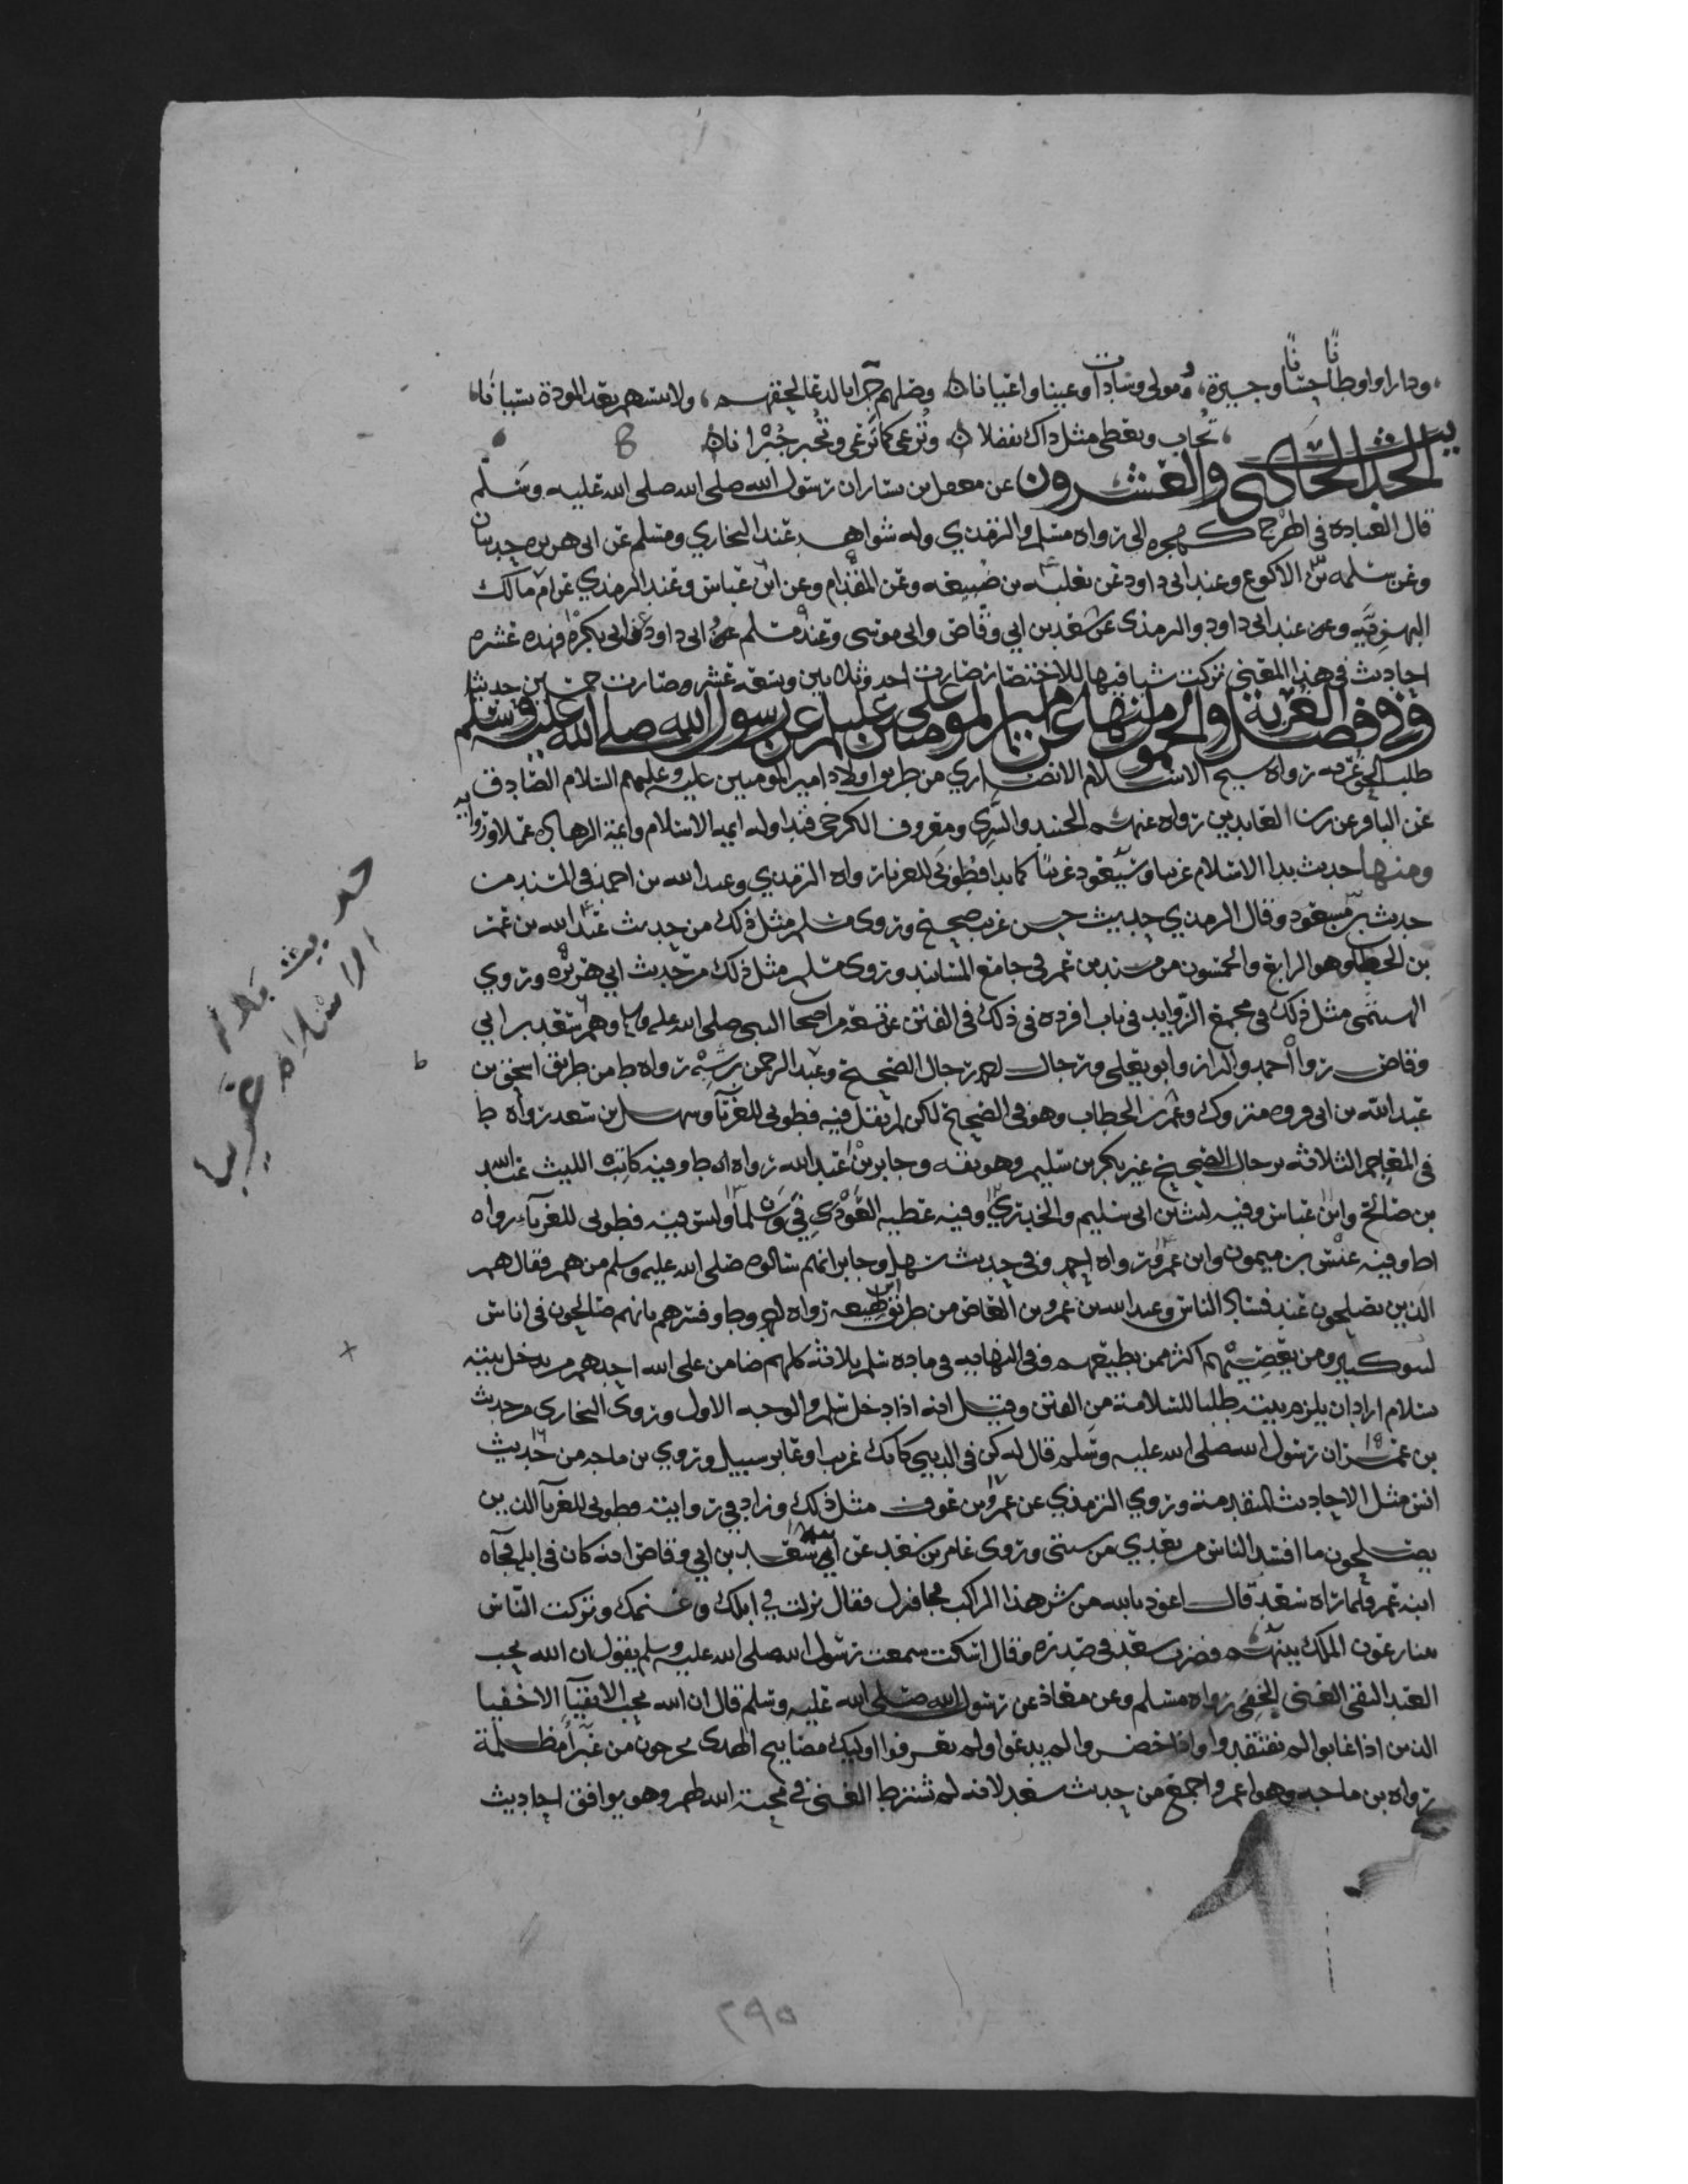 ودارا واوطانا حسانا وجيرة ومولى وسادات وعينا واعيانا وضلهم جرا بالدعا لحقهم ولا تنسهم بعد المودة نسيانا
تجاب وتعطى مثل ذاك تفضلا وترعى كما ترعى وتجبر جبرانا
الحديث الحادي والعشرون عن معقل بن يسار ان رسول الله صلى الله صلى الله عليه وسلم
قال العبادة في الهرج كهجرة الي رواه مسلم والترمذي وله شواهد عند البخاري ومسلم عن ابي هريرة حديثان
وعن سلمه بن الاكوع وعند ابي داود عن ثعلبة بن ضبيعه وعن المقدام وعن ابن عباس وعند الترمذي عن ام مالك
البهزيه وعن عند ابي داود والترمذي عن سعد بن ابي وقاص وابي موسى وعند مسلم وابي داود عن ابي بكرة فهذه عشرة
احاديث في هذا المعنى تركت سياقها للاختصار صارت احد وثلاثين وتسعه عشر وصارت خمسين حديثا
وفي فضل الغربة والخمول منها عن امير المومنين علي عليلم عن رسول الله صلى الله عليه وسلم
طلب الحق غربه رواه شيخ الاسلام الانصاري من طريق اولاد امير المومنين عليه وعليهم السلام الصادق
عن الباقر عن زين العابدين رواه عنهم الجنيد والسري ومعروف الكرخي فتداوله ايمه الاسلام وايمة الزهاده عملا ورواية
ومنها حديث بدا الاسلام غريبا وسيعود غريبا كما بدا فطوبى للغربا رواه الترمذي وعبد الله بن احمد في المسند من
حديث بن مسعود وقال الترمذي حديث حسن غريب صحيح وروى مسلم مثل ذلك من حديث عبد الله بن عمر
بن الخطاب وهو الرابع والخمسون من مسند بن عمر في جامع المسانيد وروى مسلم مثل ذلك من حديث ابي هريرة وروي
الهيثمي مثل ذلك في مجمع الزوايد في باب افرده في ذلك في الفتن عن تسعة من اصحاب النبي صلى الله عليه وسلم وهم سعد بن ابي
وقاص رواه احمد والبزار وابو يعلى ورجال احمد رجال الصحيح وعبد الرحمن بن سنه رواه طا من طريق اسحق بن
عبد الله بن ابي فروه متروك وعمر بن الخطاب وهو في الصحيح لكن لم يقل فيه فطوبى للغربا وسهل بن سعد رواه طا
في المعاجم الثلاثه برجال الصحيح غير بكر بن سليم وهو ثقه وجابر بن عبد الله رواه طا وفيه كاتب الليث عبد الله
بن صالح وابن عباس وفيه ليث بن ابي سليم والخدري وفيه عطيه العوفي وسلمان وليس فيه فطوبى للغرباء رواه
طا وفيه عبيس بن ميمون وابن عمرو رواه احمد وفي حديث سهل وجابر انهم سالوه صلى الله عليه وسلم من هم فقال هم
الذين يصلحون عند فساد الناس وعبد الله بن عمرو بن العاص من طريق ابن لهيعه رواه احمد وطا وفسرهم بانهم صالحون في اناس
سوء كثير ومن يعصيهم اكثر ممن يطيعهم وفي النهايه في ماده سلم ثلاثة كلهم ضامن على الله احدهم من يدخل بيته
بسلام اراد ان يلزم بيته طلبا للسلامة من الفتن وقيل انه اذا دخل سلم والوجه الاول وروى البخاري من حديث
بن عمر ان رسول الله صلى الله عليه وسلم قال له كن في الدنيا كانك غريب او عابر سبيل وروي بن ماجه من حديث
انس مثل الاحاديث المتقدمة وروي الترمذي عن عمرو بن عوف مثل ذلك وزاد في روايته فطوبى للغربآ الذين
يصلحون ما افسد الناس من بعدي من سنتي وروى عامر بن سعد عن ابيه سعد بن ابي وقاص انه كان في ابله فجآه
ابنه عمر فلما رآه سعد قال اعوذ بالله من شر هذا الراكب فجا فنزل فقال نزلت في ابلك وغنمك وتركت الناس
يتنازعون الملك بينهم فضرب سعد في صدره وقال اسكت سمعت رسول الله صلى الله عليه وسلم يقول ان الله يحب
العبد التقي الغني الخفي رواه مسلم وعن معاذ عن رسول الله صلى الله عليه وسلم قال ان الله يحب الاتقيآ الاخفيا
الذين اذا غابوا لم يفتقدوا واذا حضروا لم يدعوا ولم يعرفوا اوليك مصابيح الهدى يخرجون من غبرآ مظلمة
رواه بن ماجه وهو اعم واجمع من حديث سعد لانه لم يشترط الغنى في محبة الله لهم وهو يوافق احاديث
حديث بدا
الاسلام غريبا
٢٩٥